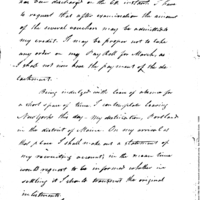 has been discharged on the 6th instant. I have
to request that after examination the amount
of the several vouchers may be admitted to
my credit. It may be proper not to take
any order on my Pay Roll for March as
I shall not now have the payment of the de-
tachment.
Being indulged with leave of absence for
a short space of time I contemplate leaving
Newyork this day. My destination, Portland
in the district of Maine. On my arrival at
that place I shall make out a statement of
my recruiting account, in the mean time
would request to be informed whether in
settling it I should transmit the original
inlistments.